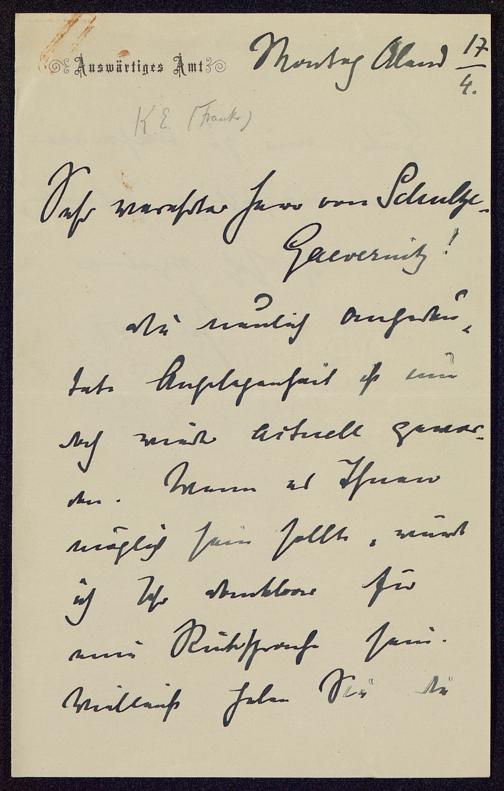 Auswärtiges Amt
Montag Abend 17/4.
K. E. (Franke)
Sehr verehrter Herr von Schultze-
Gaevernitz!
die neulich angedeu-
tete Angelegenheit ist nun
doch wieder actuell gewor-
den. Wenn es Ihnen
möglich sein sollte, würde
ich Ihr dankbar für
eine Rücksprache sein.
Vielleicht haben Sie die